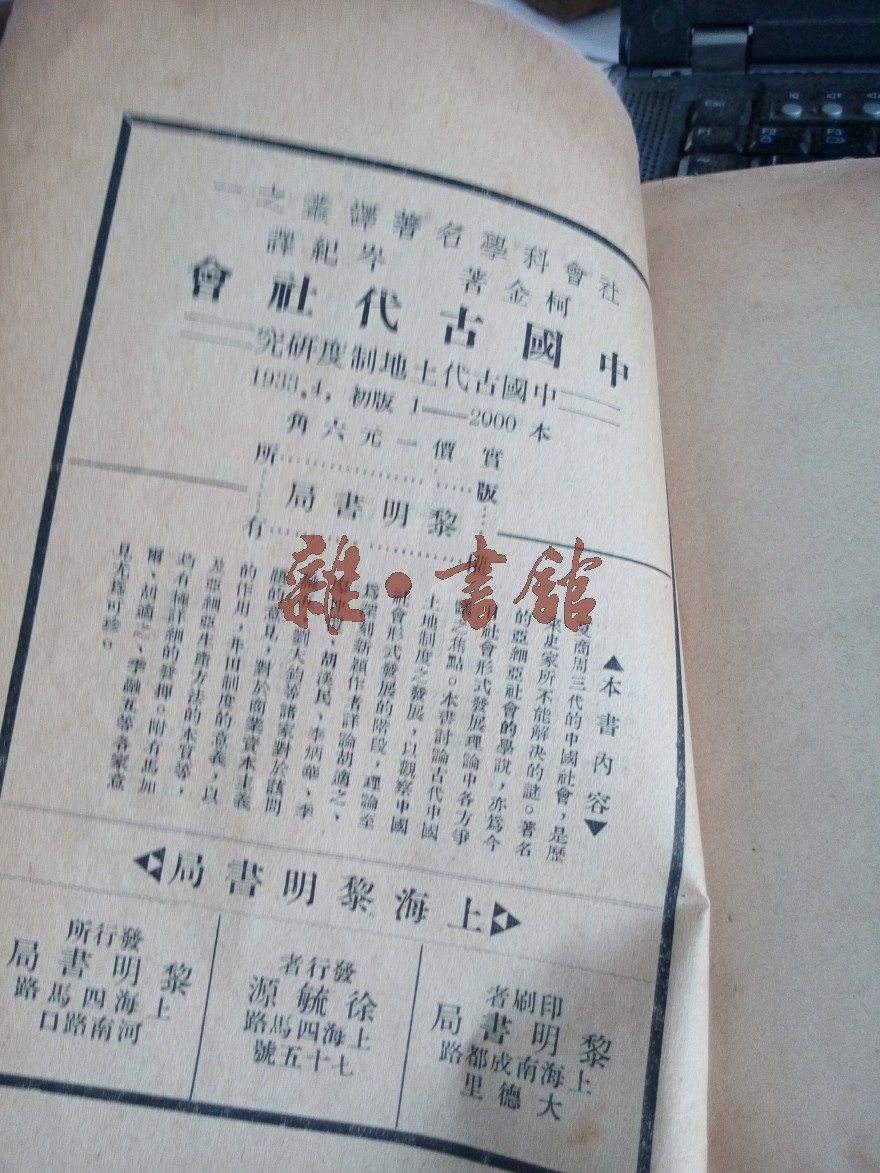 社會科學名著譯叢之一
柯金著 岑紀譯
中國古代社會
中國古代土地制度研究
1933.4,初版 1——2000 本
實價一元六角
版 所
黎明書局
有
▲本書內容▼
夏商周三代的中國社會,是歷
來史家所不能解決的謎。著名
的亞細亞社會的學說,亦為今
社會形式發展理論中各方爭
論之焦點。本書討論古代中國
土地制度之發展,以觀察中國
社會形式發展的階段,理論至
為深刻新穎作者評論胡適之、
胡漢民、李炳華、季
劉大鈞等諸家對於該問
題的意見,對於商業資本主義
的作用,井田制度的意義,以
及亞細亞生產方法的本質等,
均有極詳細的發揮。附有馬加
爾、胡適之、季融五等各家意
見尤為可珍。
上海黎明書局
印刷者
黎明書局
上海南成都路
大德里
發行者
徐毓源
上海四馬路
七十五號
發行所
黎明書局
上海四馬路
河南路口
雜·書館